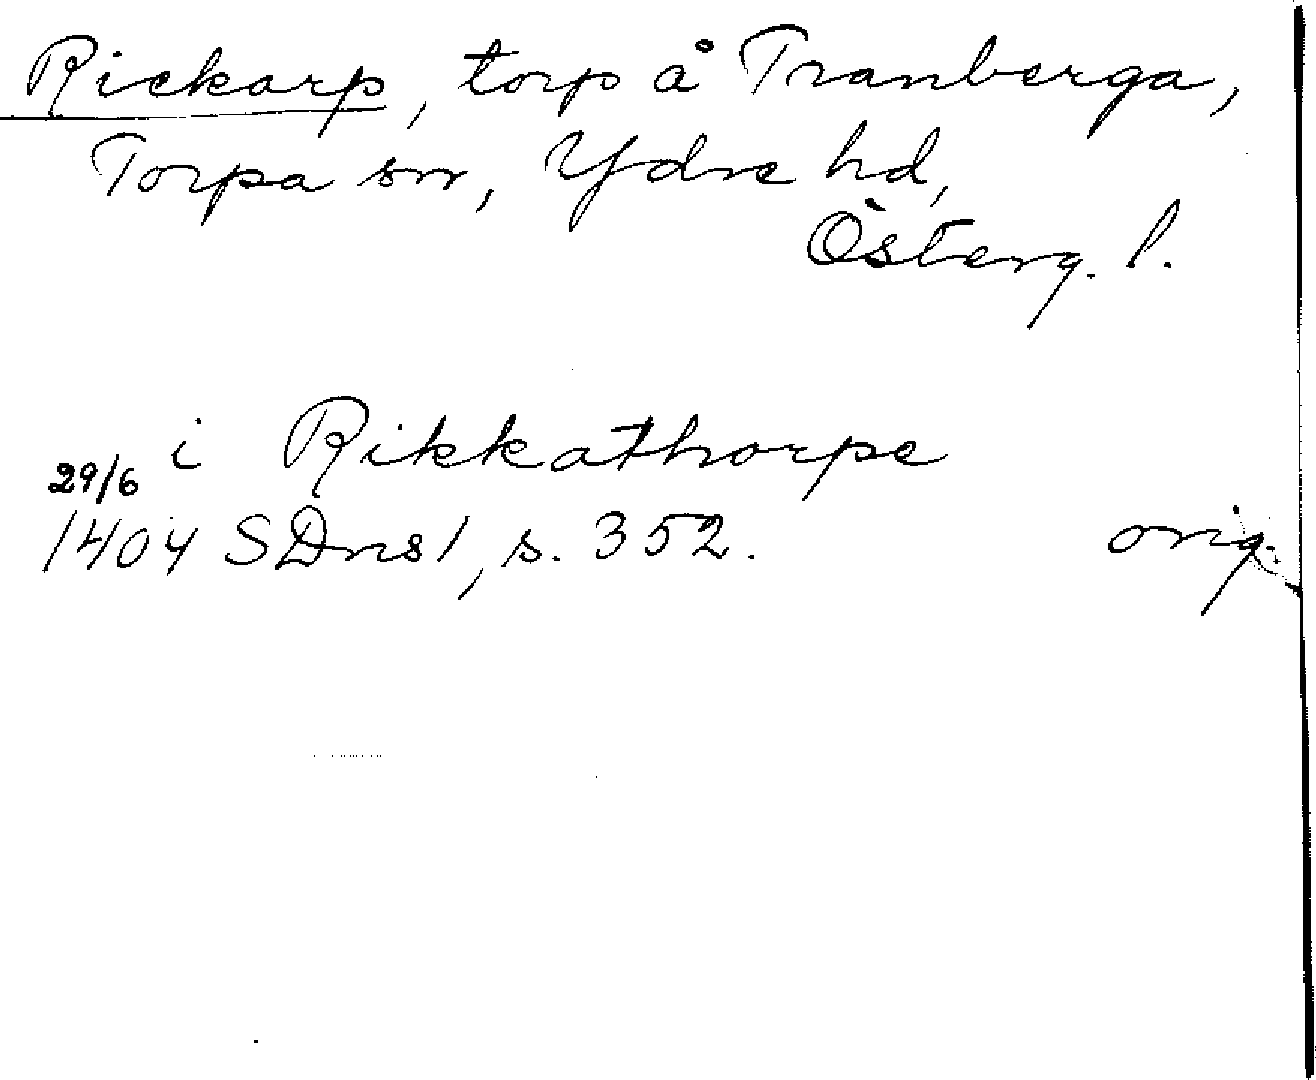 Rickarp, torp å Tranberga,
Torpa sn, Ydre hd,
Österg. l.
i Rikkathorpe
29/6
1404 SDns1, s. 352. orig.